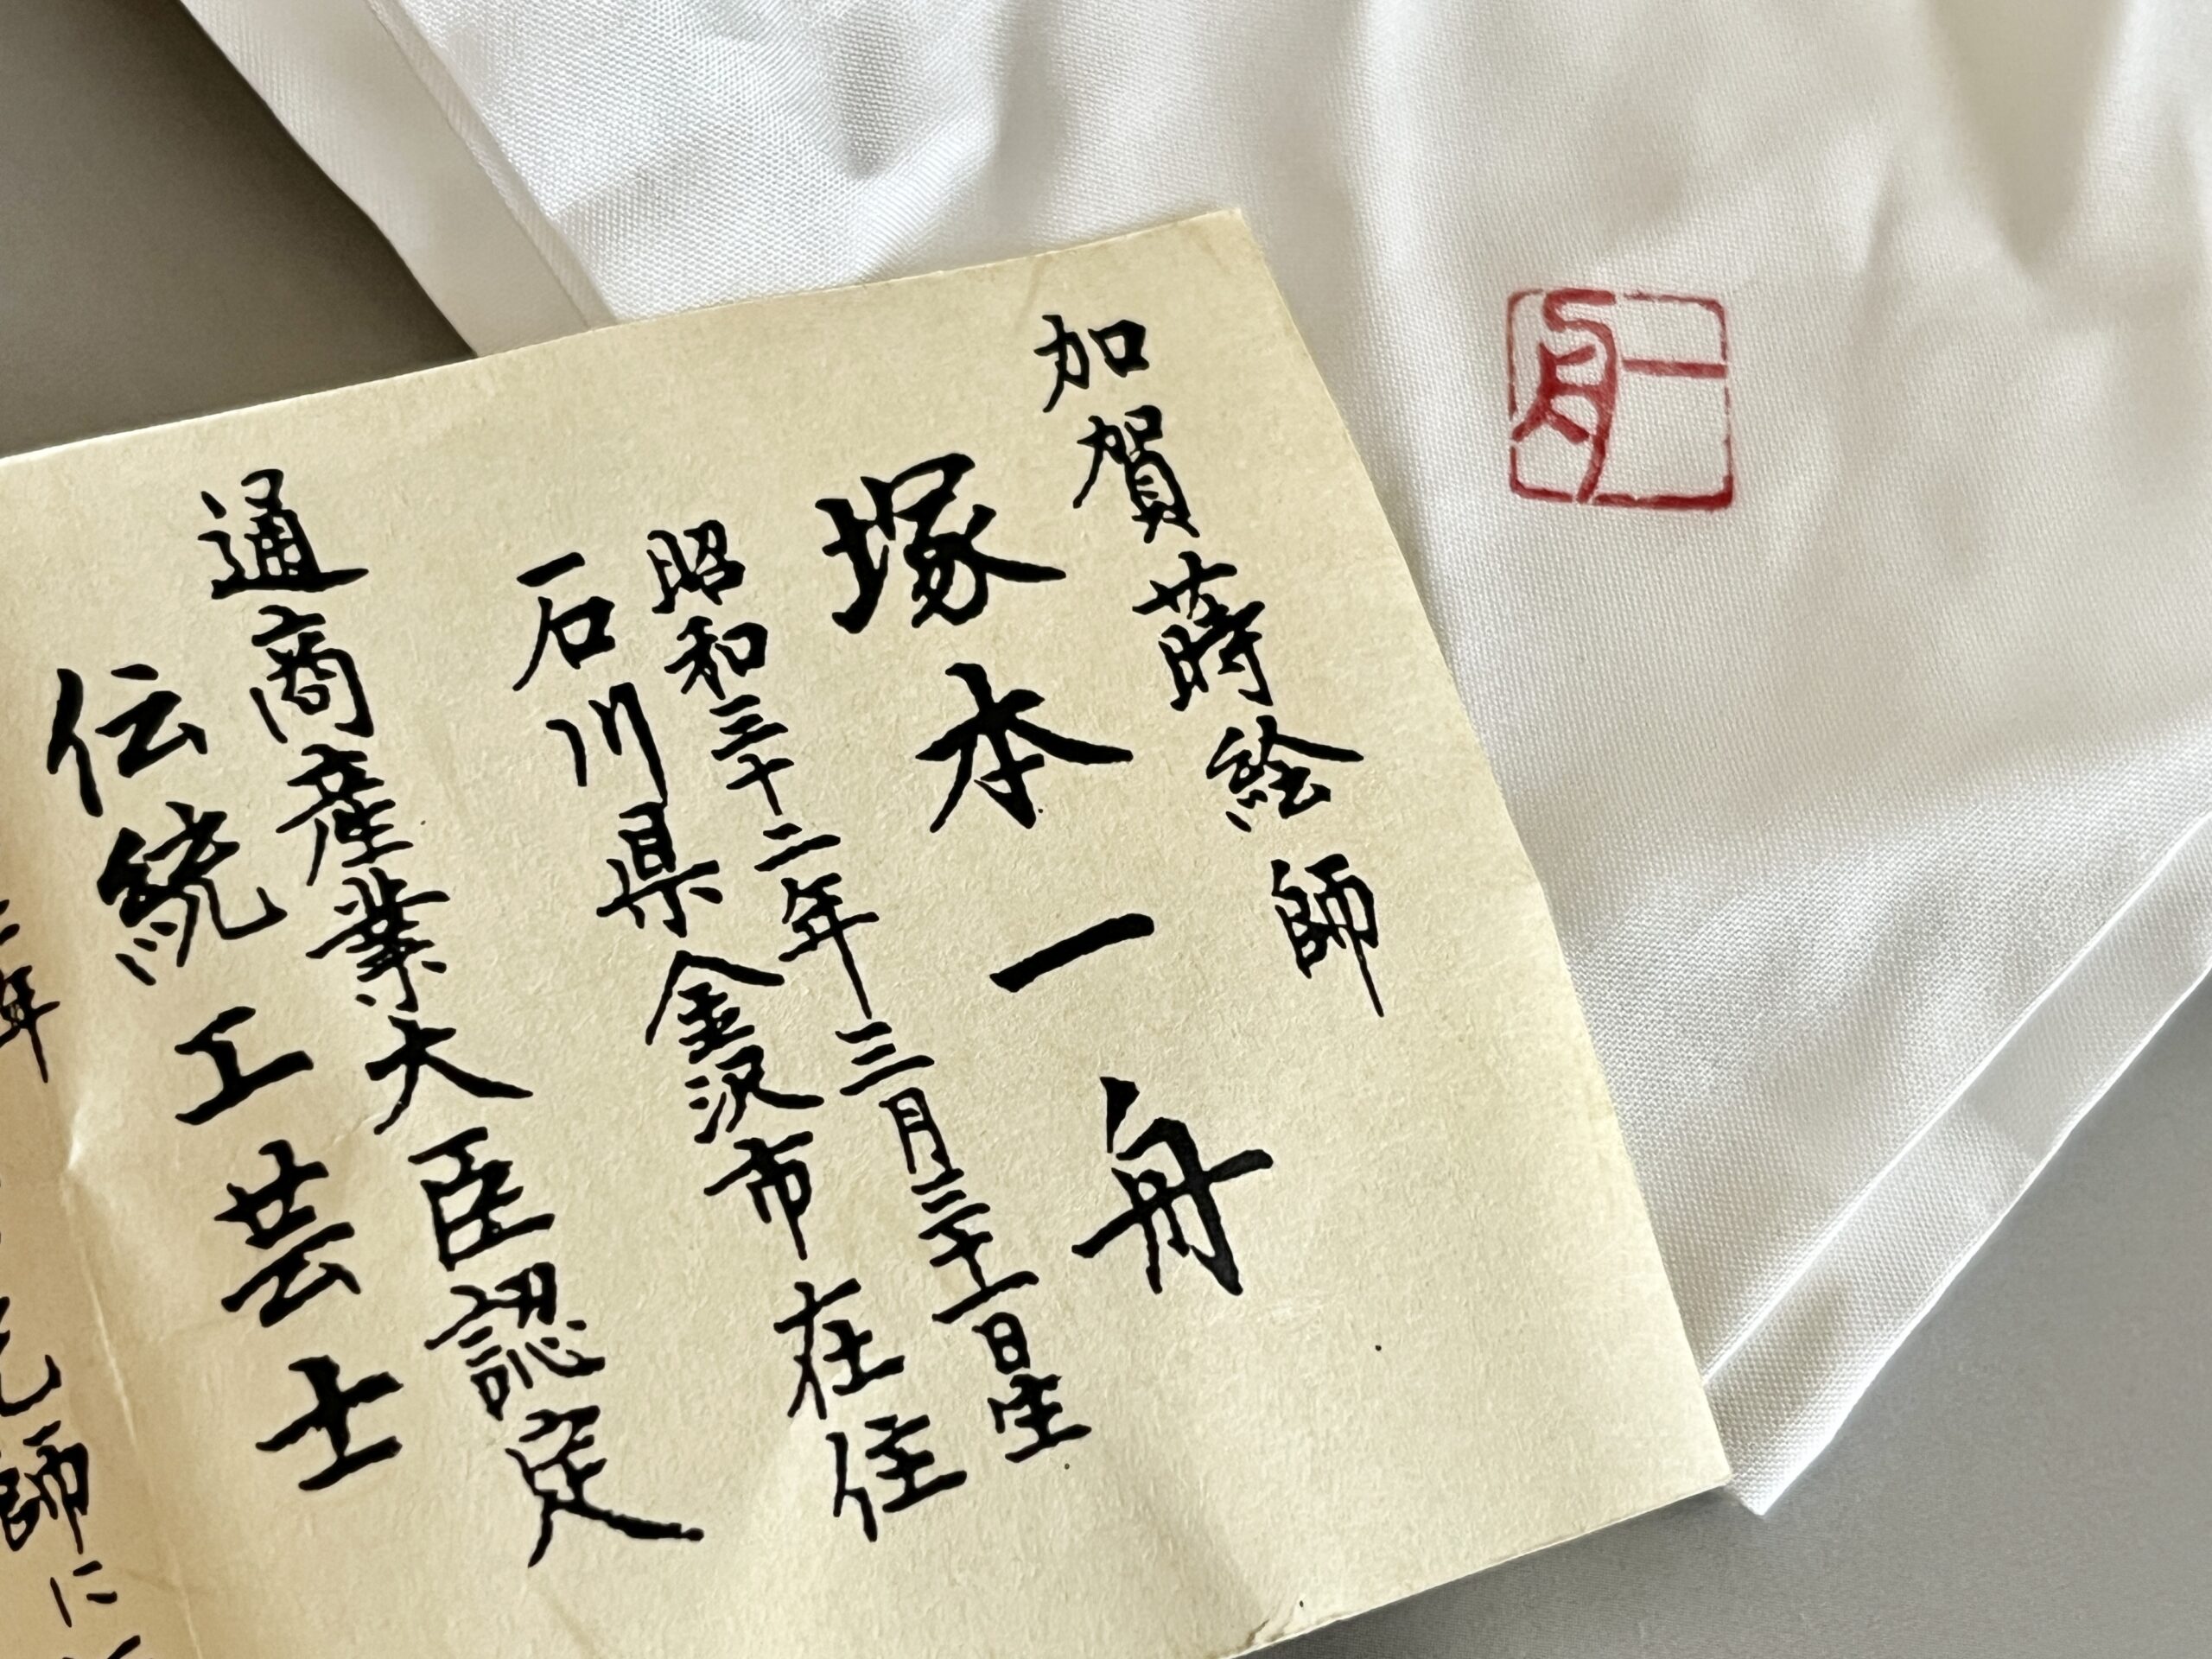 加賀蒔絵師
塚本一舟
昭和三十二年三月三十一日生
石川県金沢市在住
通商産業大臣認定
伝統工芸士
年
師に
一舟